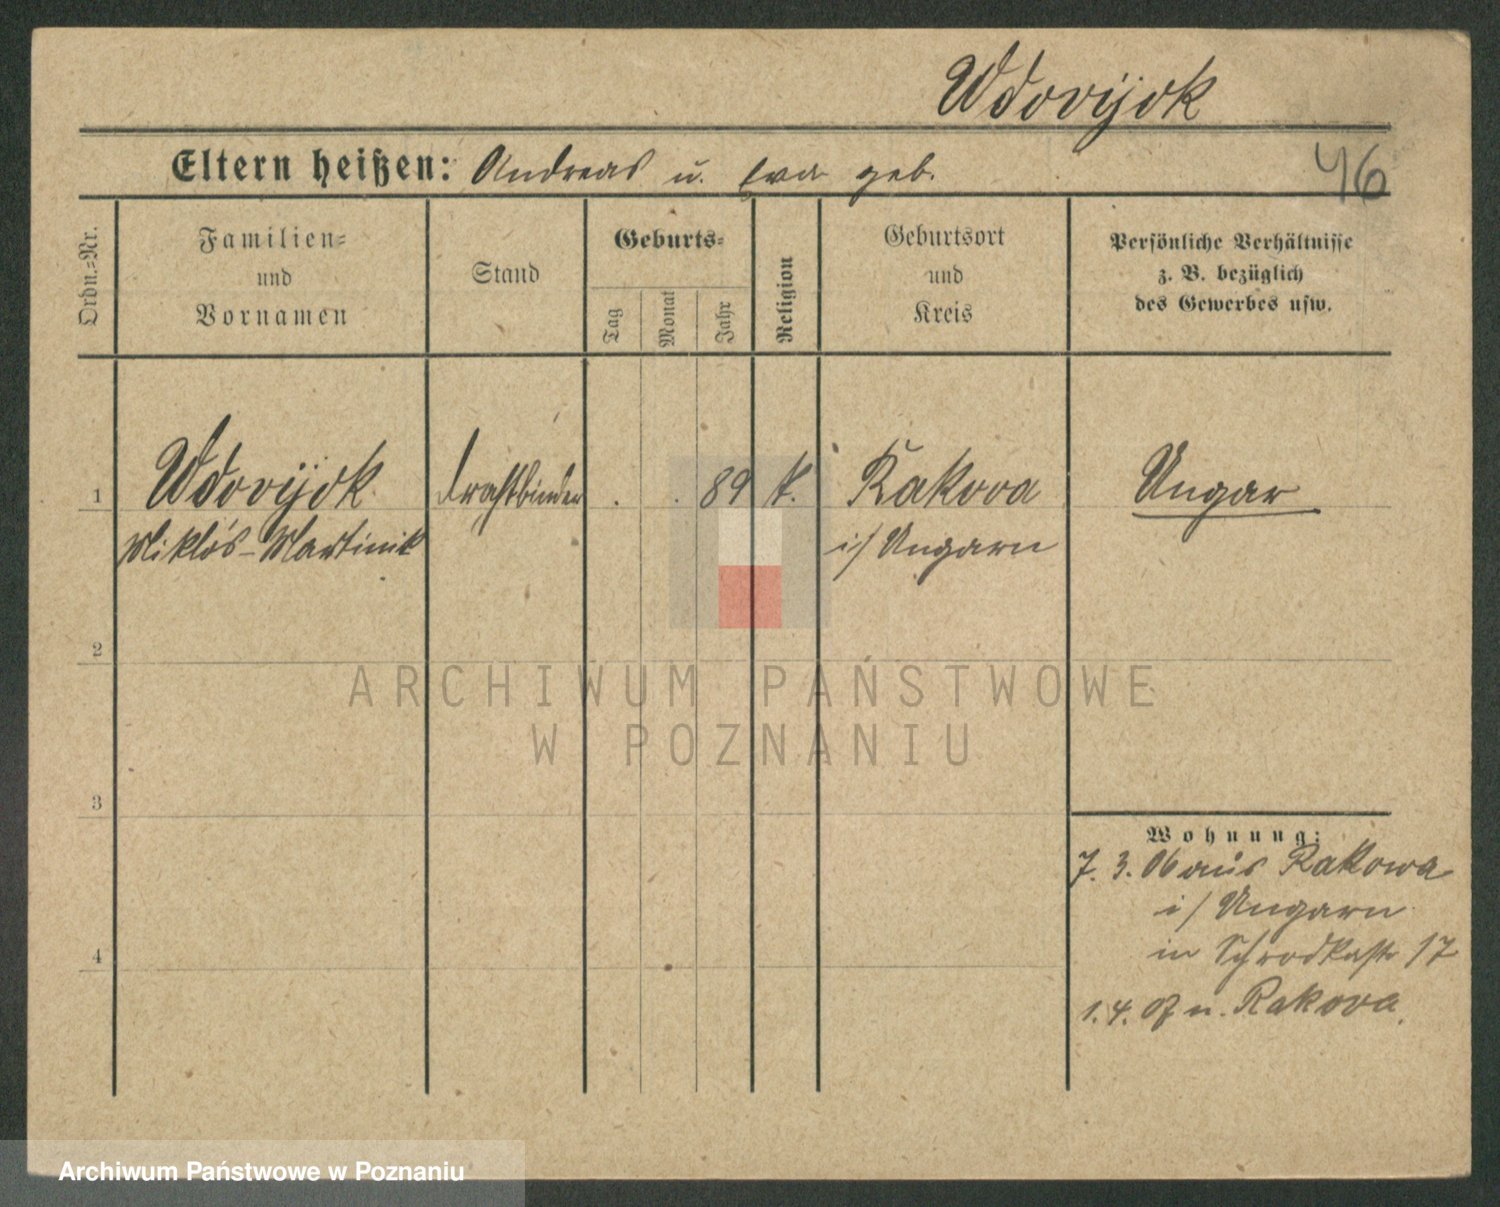 Wdovijok
Eltern heißen: Andreas u. Eva geb.
46
Ordn.=Nr.
Familien=
und
Vornamen
Stand
Geburts=
Tag
Monat
Jahr
Religion
Geburtsort
und
Kreis
Persönliche Verhältnisse
z. B. bezüglich
des Gewerbes usw.
1 Wdovijok Drahtbinder . . 89 k. Rakova Ungar
Miklós-Martinik i/ Ungarn
2
3
4
Wohnung:
7. 3. 06 aus Rakowa
i/ Ungarn
in Schrodkastr 17
1. 4. 07 n. Rakova.
ARCHIWUM PAŃSTWOWE
W POZNANIU
Archiwum Państwowe w Poznaniu